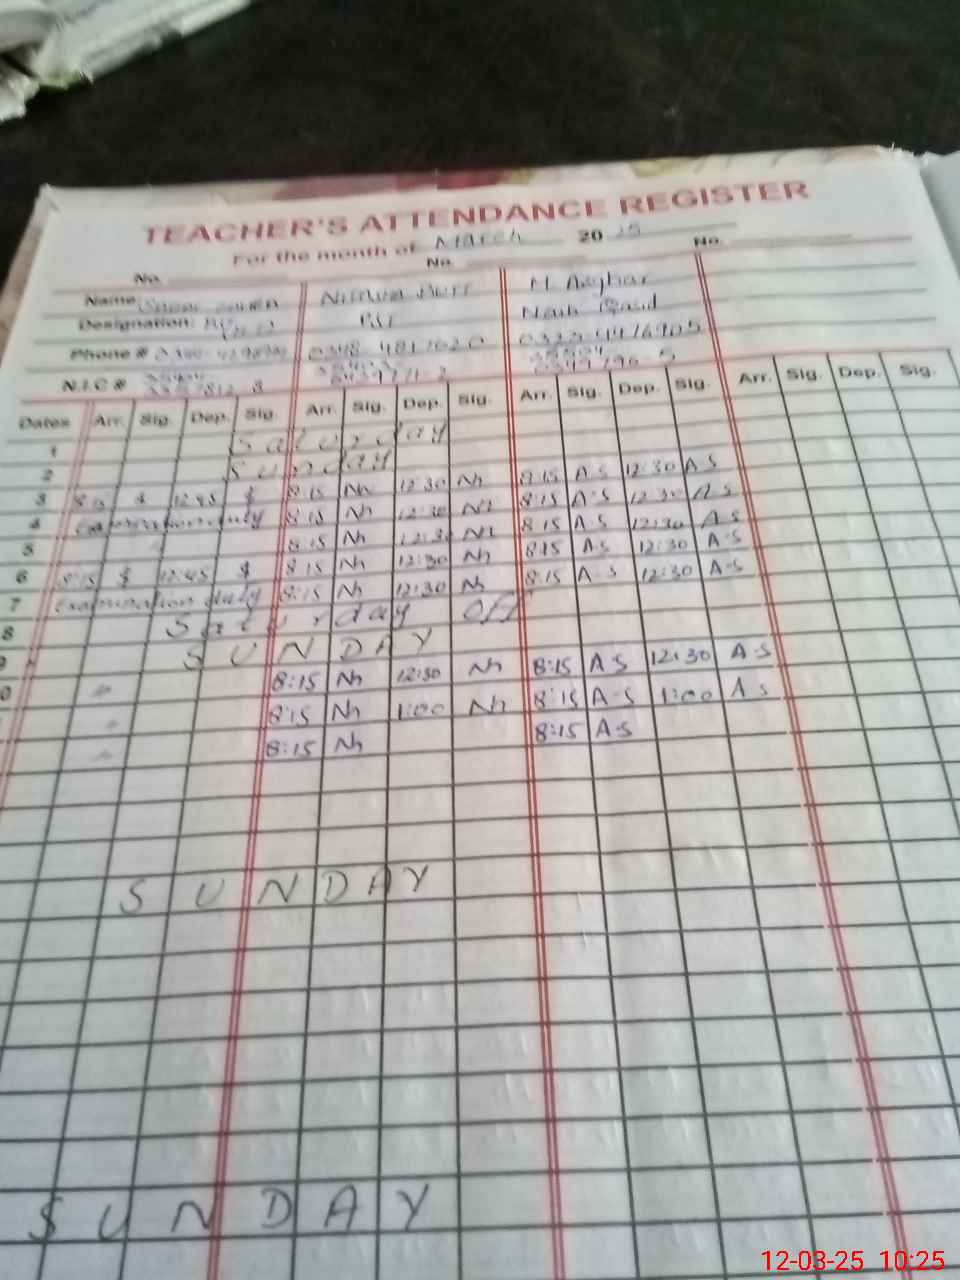 TEACHER'S ATTENDANCE REGISTER
For the month of March 20 25
No. No. No.
Name M Asghar
Designation: PST Naib Qasid
Phone #
N.I.C #
Dates Arr. Sig. Dep. Sig. Arr. Sig. Dep. Sig. Arr. Sig. Dep. Sig. Arr. Sig. Dep. Sig.
1 Saturday
2 Sunday
3 8:15 $ 12:45 $ 8:15 Nh 12:30 Nh 8:15 A-S 12:30 A S
4 Examination duty 8:15 Nh 12:30 Nh 8:15 A-S 12:30 A-S
5 " 8:15 Nh 12:30 Nh 8:15 A-S 12:30 A-S
6 8:15 $ 12:45 $ 8:15 Nh 12:30 Nh 8:15 A-S 12:30 A-S
7 Examination duty 8:15 Nh 12:30 Nh 8:15 A-S 12:30 A-S
8 Saturday off
9 SUNDAY
0 " 8:15 Nh 12:30 Nh 8:15 A S 12:30 A-S
" 8:15 Nh 1:00 Nh 8:15 A-S 1:00 A S
" 8:15 Nh 8:15 A-S
SUNDAY
SUNDAY
12-03-25 10:25